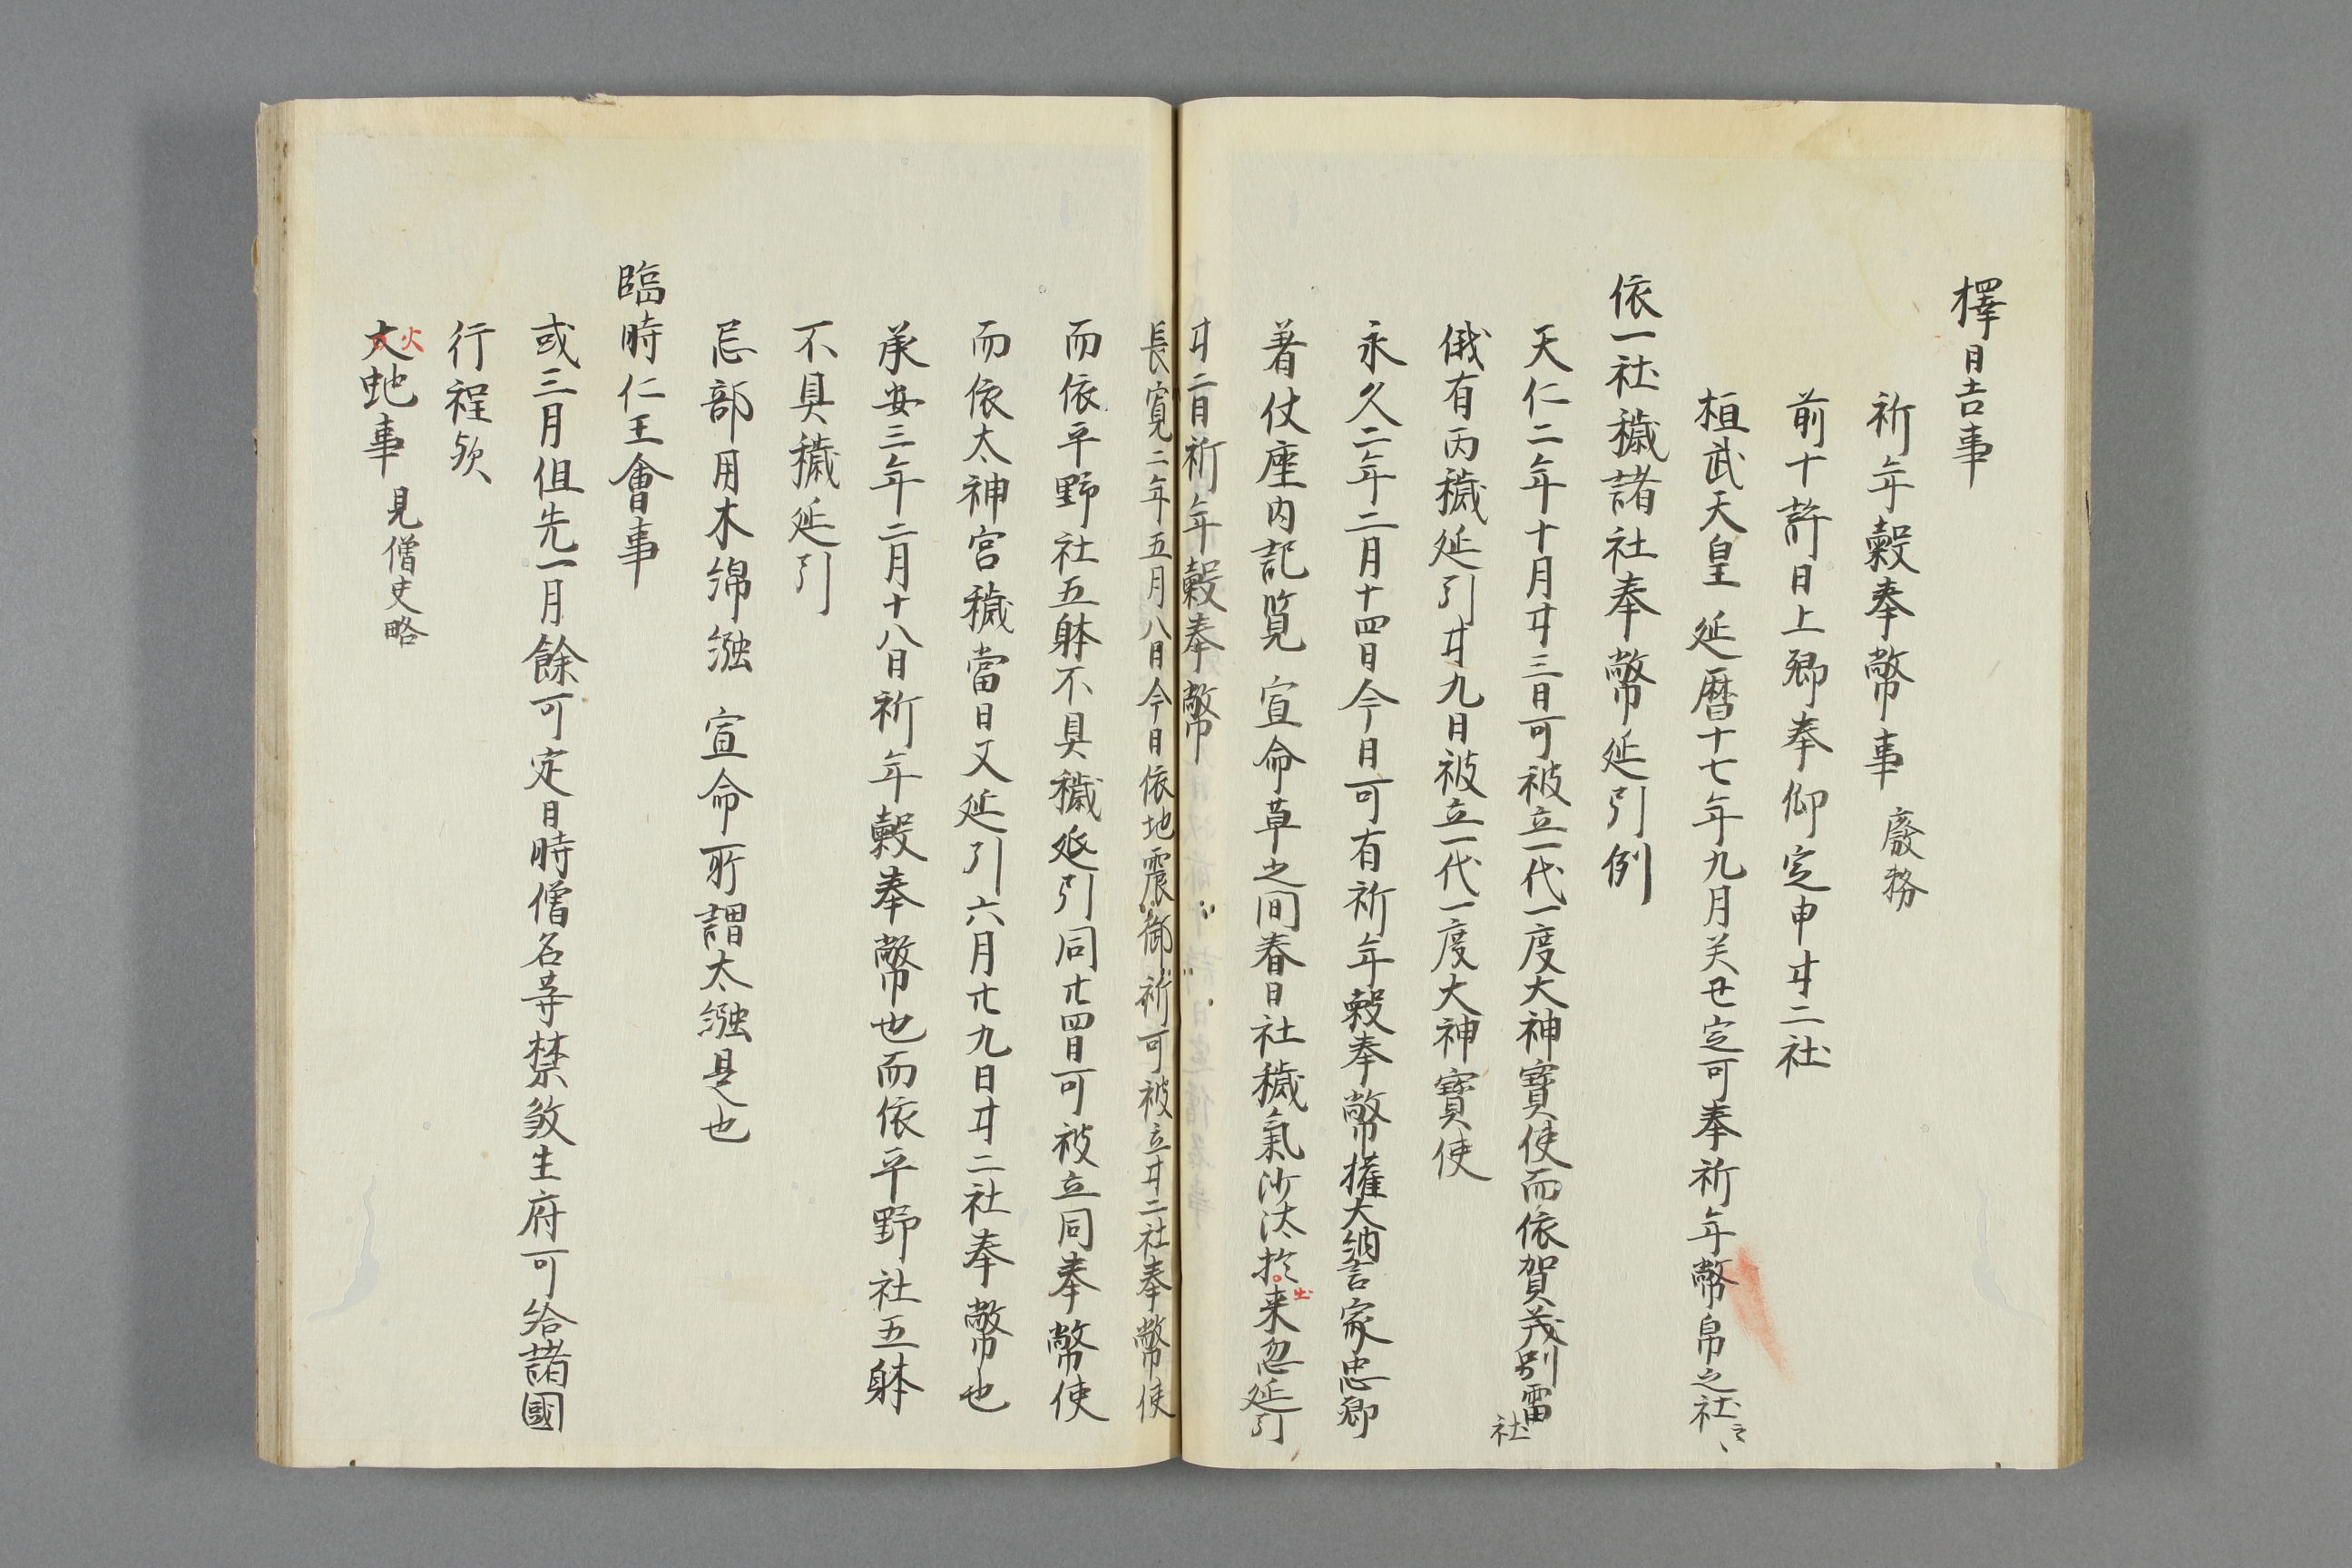 擇日吉事
祈年穀奉幣事 廢務
前十許日上卿奉仰定申廿二社
桓武天皇 延暦十七年九月癸丑定可奉祈年幣帛之社云々
依一社穢諸社奉幣延引例
天仁二年十月廿三日可被立一代一度大神寳使而依賀茂別雷社
俄有丙穢延引廿九日被立一代一度大神寳使
永久二年二月十四日今日可有祈年穀奉幣權大納言家忠卿
著仗座内記覧 宣命草之間春日社穢氣沙汰出来忽延引
廿二日祈年穀奉幣
長寛二年五月八日今日依地震御祈可被立廿二社奉幣使
而依平野社五躰不具穢延引同廿四日可被立同奉幣使
而依太神宮穢當日又延引六月廿九日廿二社奉幣也
承安三年二月十八日祈年穀奉幣也而依平野社五躰
不具穢延引
忌部用木綿繦 宣命所謂太繦是也
臨時仁王會事
或三月但先一月餘可定日時僧名等禁殺生府可給諸國
行程欤
火
大虵事 見僧史略